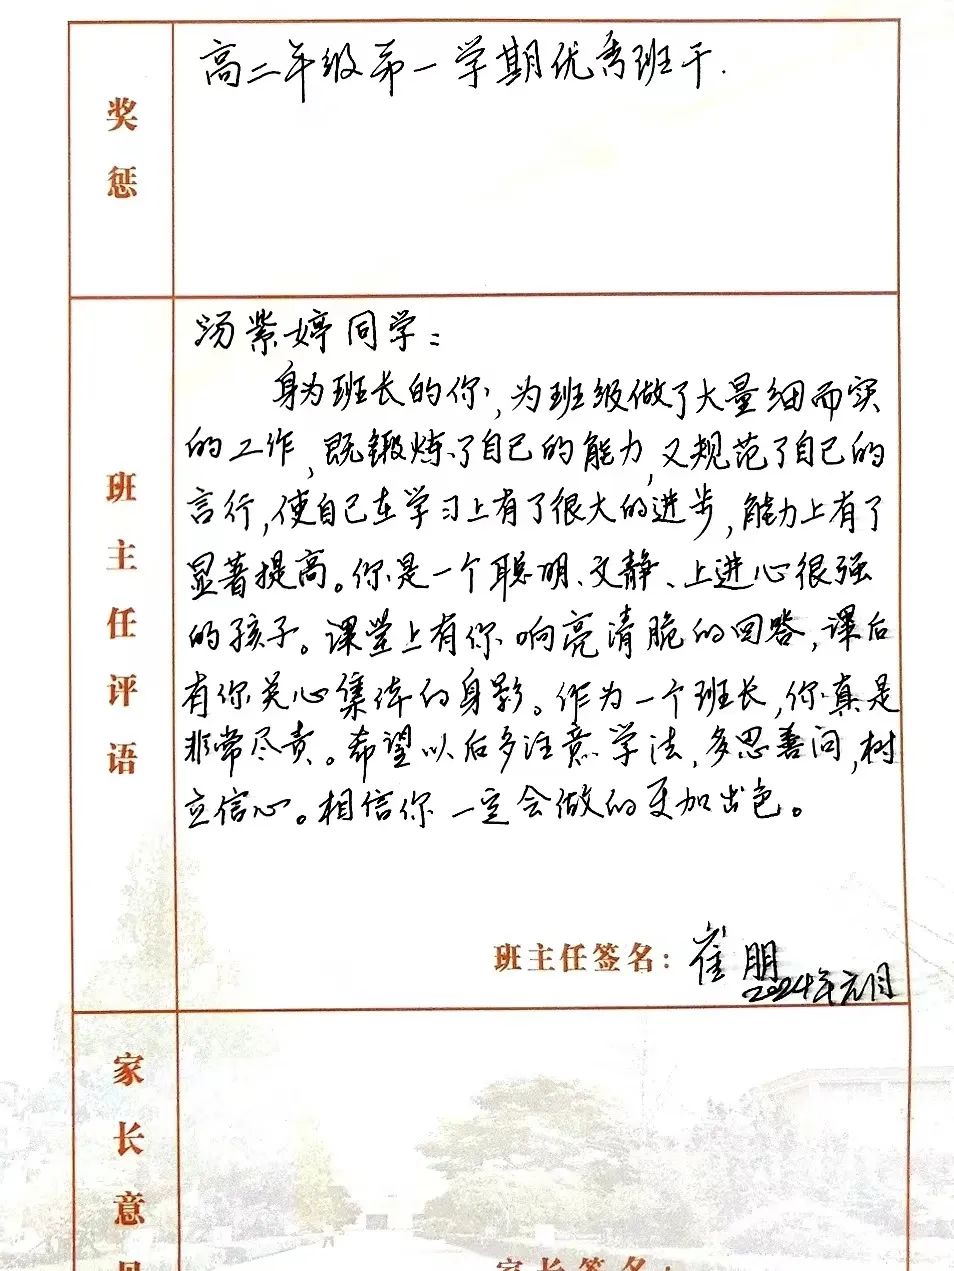 奖惩
高二年级第一学期优秀班干.
班主任评语
汤紫婷同学：
身为班长的你，为班级做了大量细而实
的工作，既锻炼了自己的能力，又规范了自己的
言行，使自己在学习上有了很大的进步，能力上有了
显著提高。你是一个聪明、文静、上进心很强
的孩子。课堂上有你响亮清脆的回答，课后
有你关心集体的身影。作为一个班长，你真是
非常尽责。希望以后多注意学法，多思善问，树
立信心。相信你一定会做的更加出色。
班主任签名：崔朋
2024年元月
家长意见
家长签名：